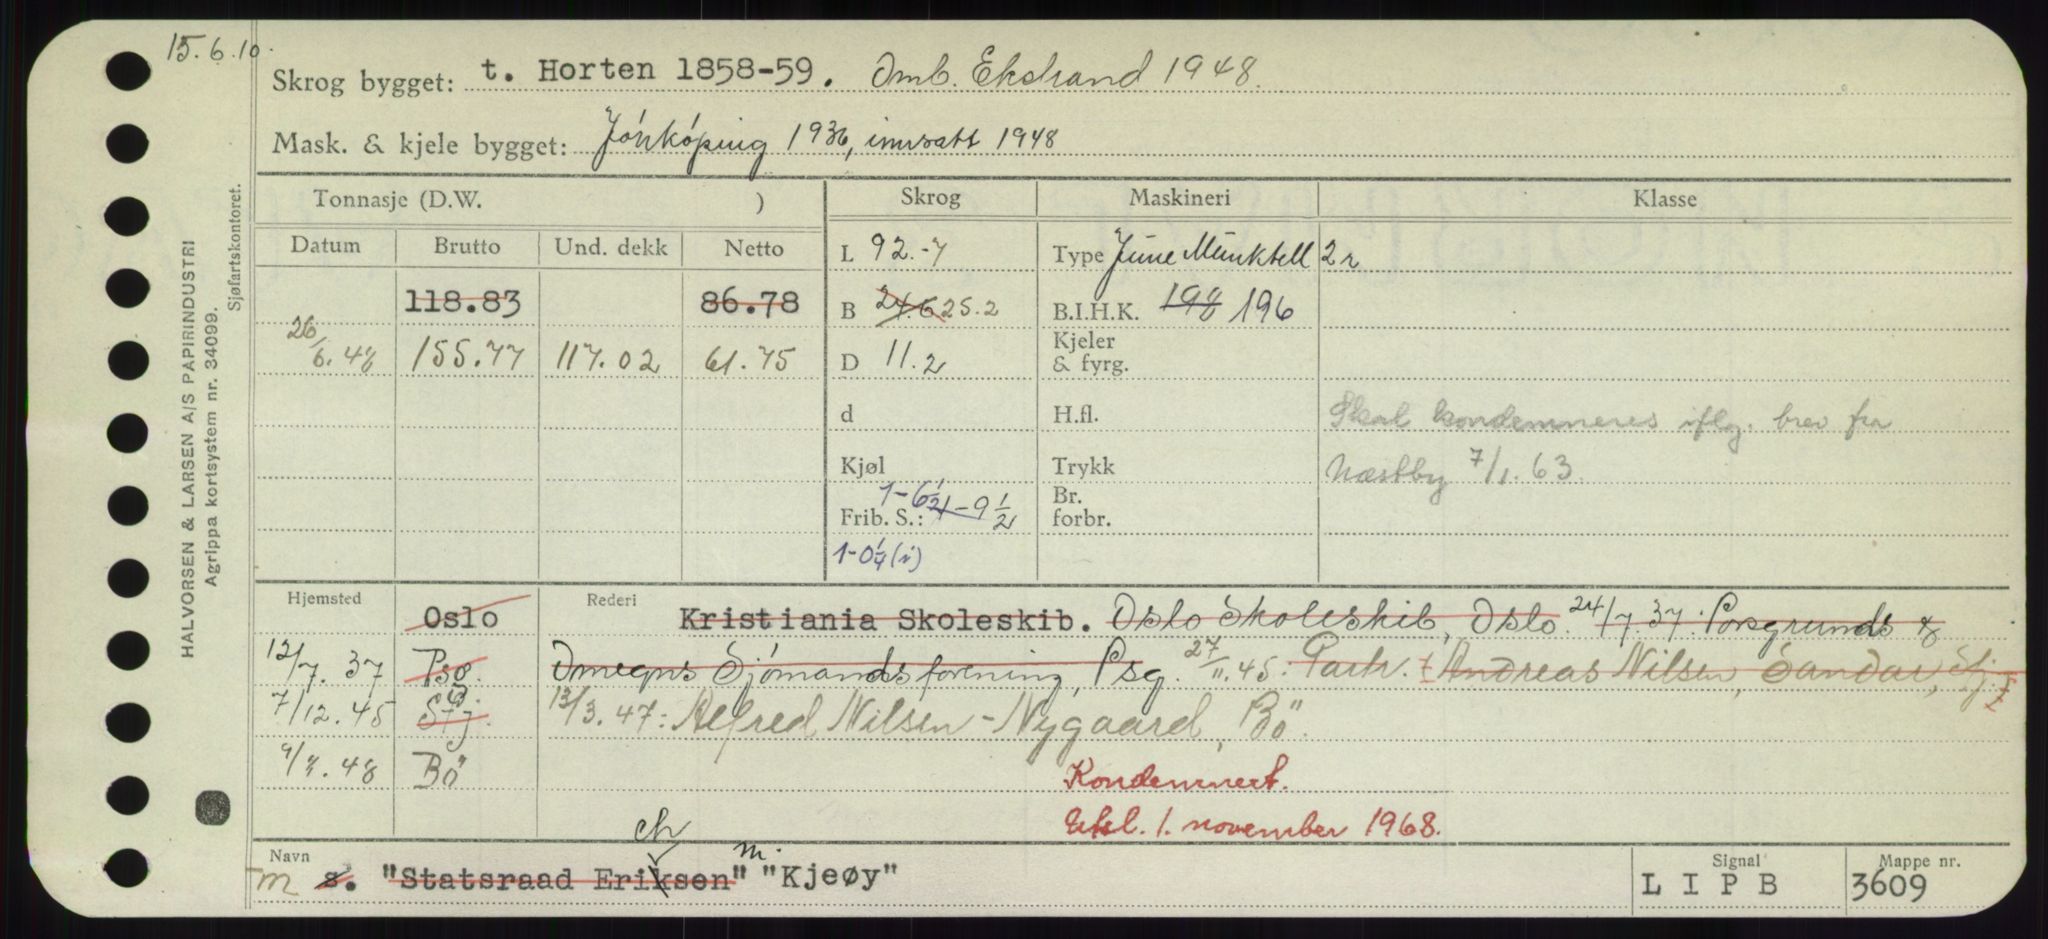 15.6.10.
Skrog bygget: t. Horten 1858-59. Omb. Ekstrand 1948.
Mask. & kjele bygget: Jönköping 1936, innsatt 1948
Tonnasje (D.W. ) Skrog Maskineri Klasse
Datum Brutto Und. dekk Netto L 92.-7 Type June Munktell 2 r
118.83 86.78 B 24.6 25.2 B.I.H.K. 198 196
26/6.48 155.77 117.02 61.75 D 11.2 Kjeler & fyrg.
d H.fl. Skal kondemneres iflg. brev fra
Kjøl Trykk Næstby 7/1.63.
Frib. S.: 1-6½ 1-9½ Br. forbr.
1-0¼(i)
Hjemsted Oslo Rederi Kristiania Skoleskib. Oslo Skoleskib, Oslo. 24/7 37. Porsgrunds &
12/7. 37 Psg. Omegns Sjömandsforening, Psg. 27/11.45. Partr. Andreas Nilsen, Sandar, Sfj.
7/12.45 Sfj. 13/3.47: Alfred Nilsen-Nygaard, Bö.
9/4.48 Bö Kondemnert.
Utsl. 1. november 1968.
ch m.
Navn Signal Mappe nr.
m s. "Statsraad Eriksen" "Kjeøy" L I P B 3609
HALVORSEN & LARSEN A/S PAPIRINDUSTRI
Agrippa kortsystem nr. 34099.
Sjøfartskontoret.